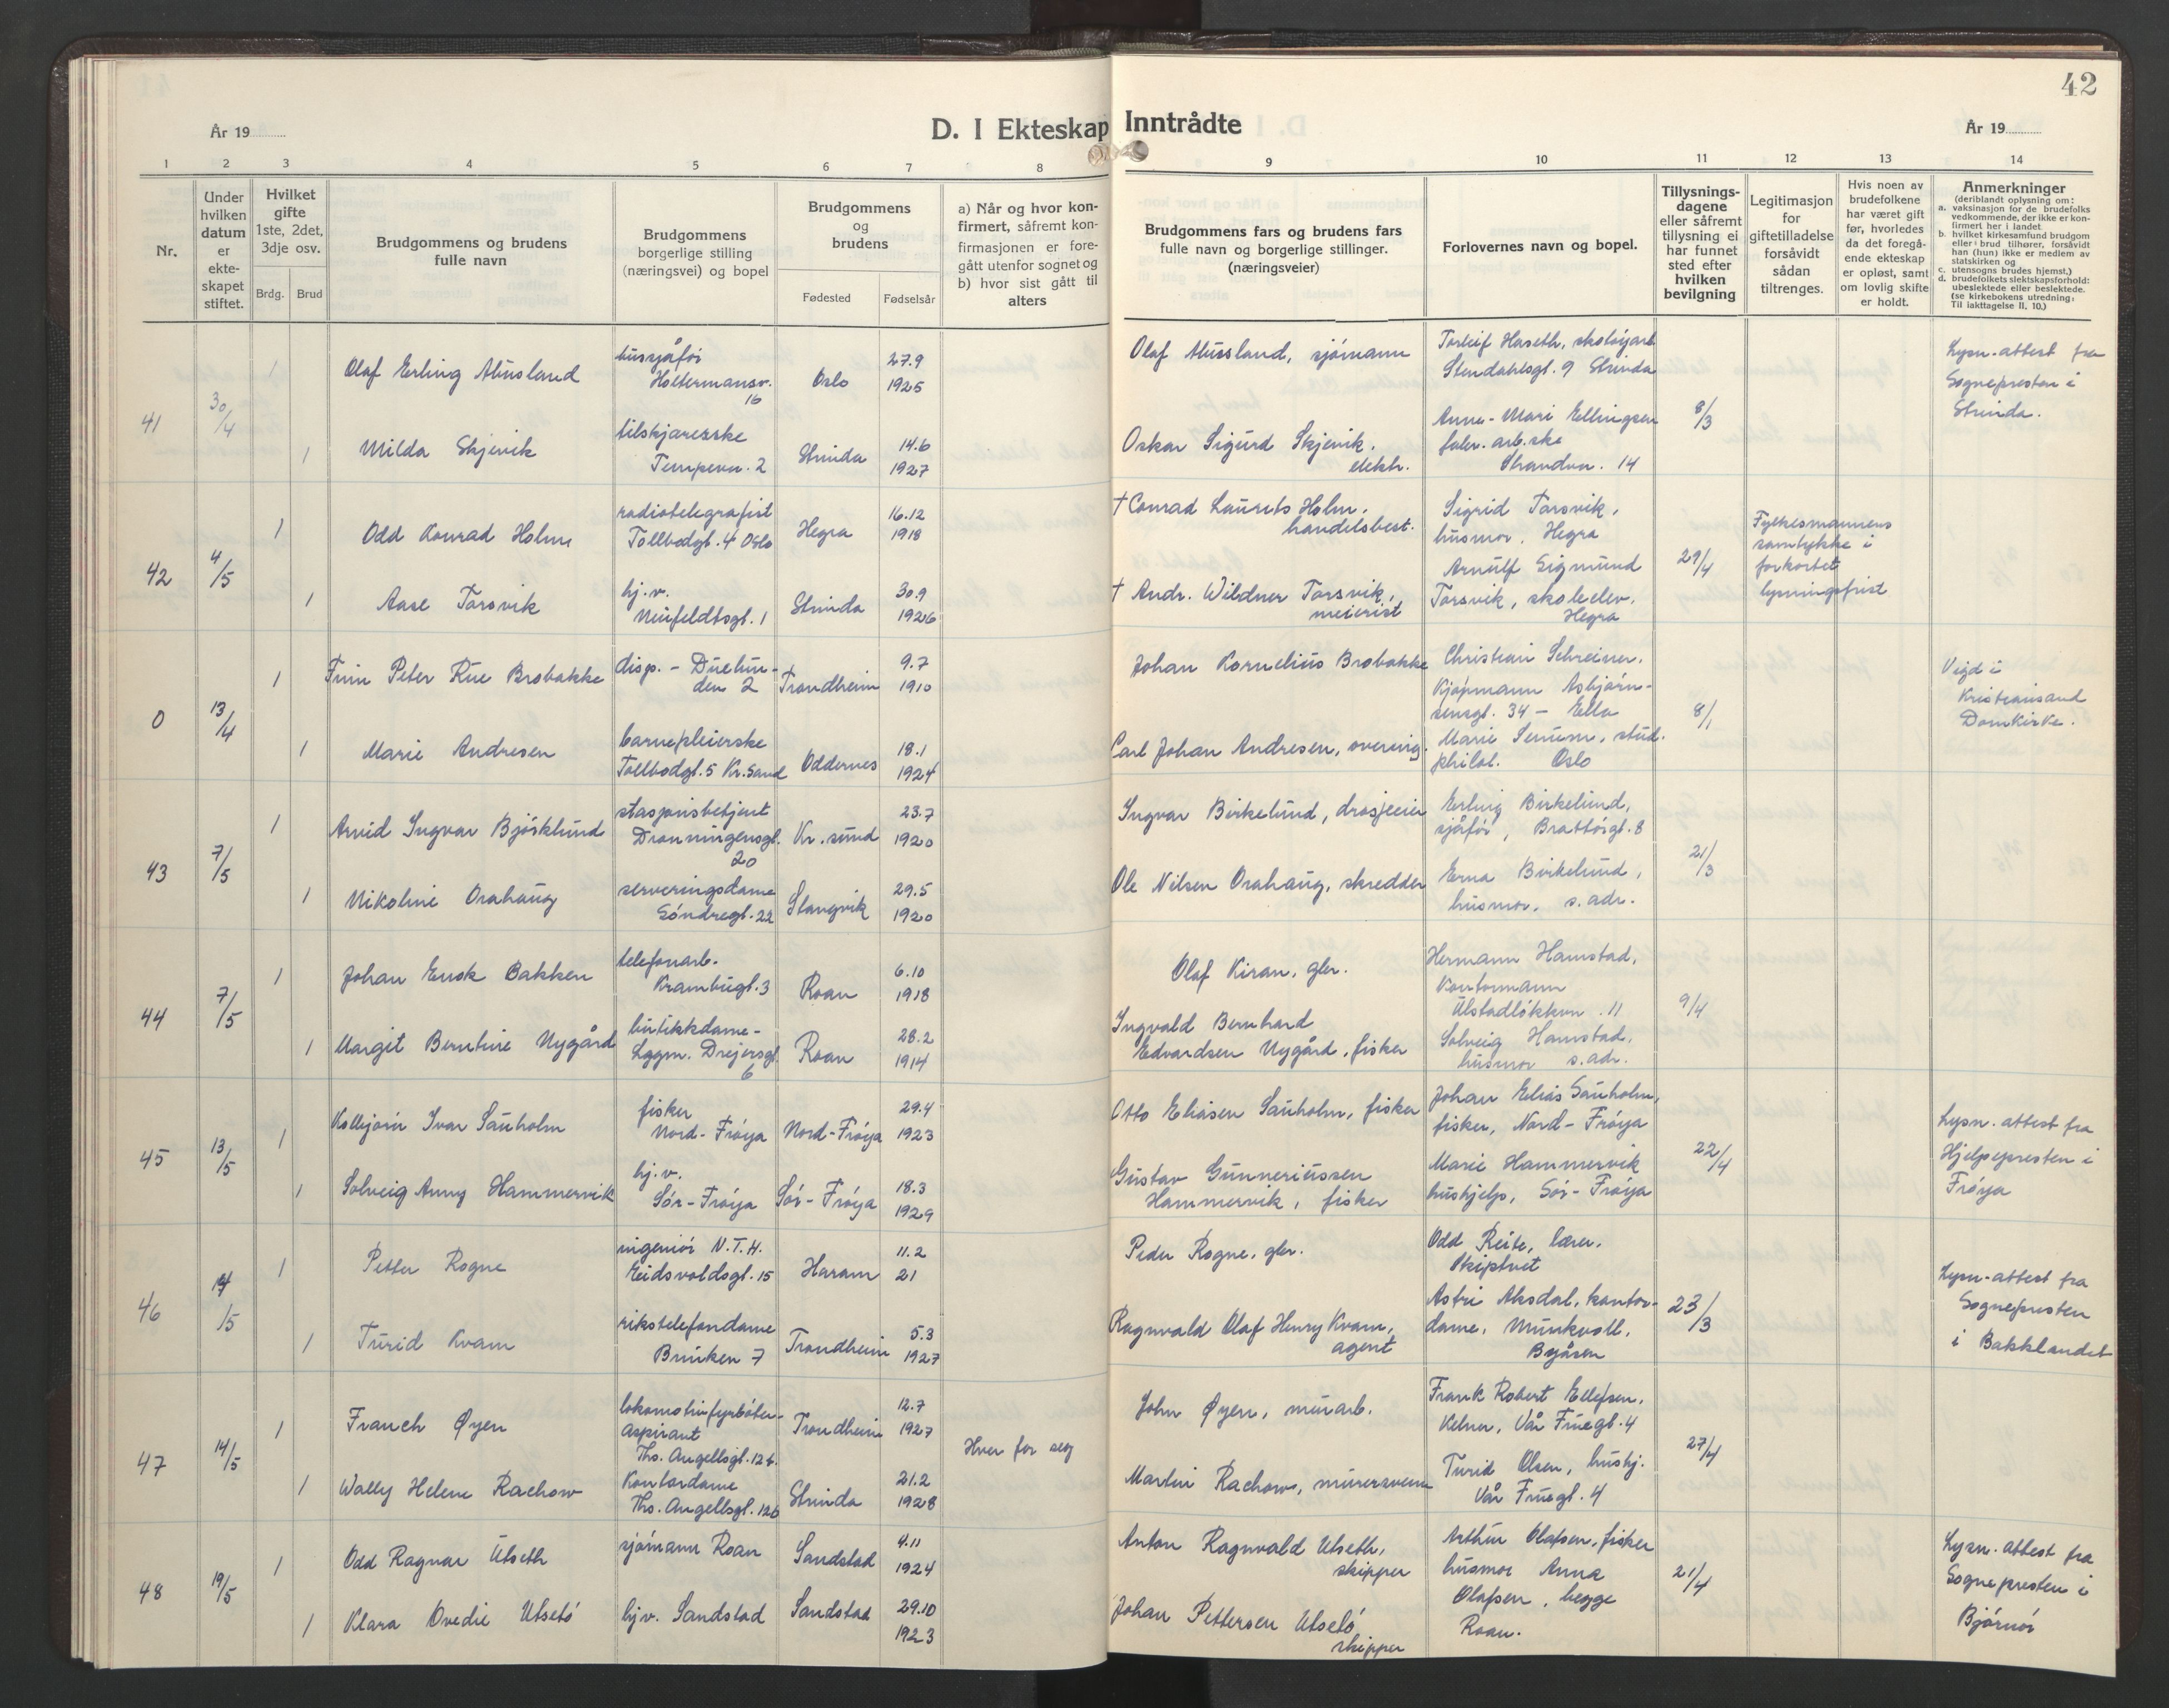 42
År 19
D. I Ekteskap Inntrådte
År 19
1 2 3 4 5 6 7 8 9 10 11 12 13 14
Nr.
Under
hvilken
datum
er
ekte-
skapet
stiftet.
Hvilket
gifte
1ste, 2det,
3dje osv.
Brdg. Brud
Brudgommens og brudens
fulle navn
Brudgommens
borgerlige stilling
(næringsvei) og bopel
Brudgommens
og
brudens
Fødested Fødselsår
a) Når og hvor kon-
firmert, såfremt kon-
firmasjonen er fore-
gått utenfor sognet og
b) hvor sist gått til
alters
Brudgommens fars og brudens fars
fulle navn og borgerlige stillinger.
(næringsveier)
Forlovernes navn og bopel.
Tillysnings-
dagene
eller såfremt
tillysning ei
har funnet
sted efter
hvilken
bevilgning
Legitimasjon
for
giftetilladelse
forsåvidt
sådan
tiltrenges.
Hvis noen av
brudefolkene
har været gift
før, hvorledes
da det foregå-
ende ekteskap
er opløst, samt
om lovlig skifte
er holdt.
Anmerkninger
(deriblandt oplysning om:
a. vaksinasjon for de brudefolks
vedkommende, der ikke er kon-
firmert her i landet
b. hvilket kirkesamfund brudgom
eller brud tilhører, forsåvidt
han (hun) ikke er medlem av
statskirken og
c. utensogns brudes hjemst.)
d. brudefolkets slektskapsforhold:
ubeslektede eller beslektede.
(se kirkebokens utredning:
Til iakttagelse II. 10.)
41
30/4
1
Olaf Erling
bussjåfør
Holtermansv.
16
Oslo
27.9
1925
Olaf sjømann
Torleif Haseth, skotøyarb.
Stendahlsgt. 9 Strinda
8/3
Lysn. attest fra
Sognepresten i
Strinda.
1
Milda Skjevik
tilskjærerske
Tempevn. 2
Strinda
14.6
1927
Oskar Sigurd Skjevik,
elektr.
Anne-Mari Ellingsen
arb.ske
Strandvn. 14
42
4/5
1
Odd Konrad Holm
radiotelegrafist
Tollbodgt. 4 Oslo
Hegra
16.12
1918
† Conrad Laurits Holm,
handelsbest.
Sigrid Torsvik,
husmor, Hegra
29/4
Fylkesmannens
samtykke i
forkortet
lysningsfrist
1
Aase Torsvik
hj.v.
Neufeldtsgt. 1
Strinda
30.9
1926
† Andr. Wildner Torsvik,
meierist
Arnulf Sigmund
Torsvik, skoleelev.
Hegra
0
13/4
1
Finn Peter Rue Brobakke
disp. - Duelun-
den 2
Trondheim
9.7
1910
Johan Kornelius Brobakke
Christian Schreiner,
Kjøpmann Asbjørn-
sensgt. 34 - Ella
8/1
Vigd i
Kristiansand
Domkirke.
1
Marie Andresen
barnepleierske
Tollbodgt. 5 Kr.sand
Oddernes
18.1
1924
Carl Johan Andresen, overing.
Marie stud.
philol. Oslo
43
7/5
1
Arvid Ingvar Bjørklund
stasjonsbetjent
Dronningensgt.
20
Kr.sund
23.7
1920
Ingvar Birkelund, drosjeeier
Erling Birkelund,
sjåfør, Brattørgt. 8
21/3
1
Nikoline Orahaug
serveringsdame
Søndregt. 22
Stangvik
29.5
1920
Ole Nilsen Orahaug, skredder
Erna Birkelund,
husmor, s. adr.
44
7/5
1
Johan Enok Bakken
telefonarb.
Krambugt. 3
Roan
6.10
1918
Olaf Kiran, gbr.
Hermann Hamstad,
Kontormann
Ulstadløkken. 11
9/4
1
Margit Berntine Nygård
butikkdame-
Lggm. Drejersgt.
6
Roan
28.2
1914
Ingvald Bernhard
Edvardsen Nygård, fisker
Solveig Hamstad,
husmor s. adr.
45
13/5
1
Kolbjørn Ivar Sauholm
fisker
Nord-Frøya
Nord-Frøya
29.4
1923
Otto Eliasen Sauholm, fisker
Johan Elias Sauholm,
fisker, Nord-Frøya
22/4
Lysn. attest fra
Hjelpepresten i
Frøya
1
Solveig Anny Hammervik
hj.v.
Sør-Frøya
Sør-Frøya
18.3
1929
Gustav Gunneriussen
Hammervik, fisker
Marie Hammervik
hushjelp, Sør-Frøya
46
14/5
1
Petter Rogne
ingeniør N.T.H.
Eidsvoldsgt. 15
Haram
11.2
21
Peder Rogne, gbr.
Odd Reite, lærer,
Skiptvet
23/3
Lysn-attest fra
Sognepresten
i Bakklandet
1
Turid Kvam
rikstelefondame
Brinken 7
Trondheim
5.3
1927
Ragnvald Olaf Henry Kvam,
agent
Astri Aksdal, kontor-
dame, Munkvoll,
Byåsen
47
14/5
1
Franch Øyen
lokomotivfyrbøter-
aspirant
Ths. Angellsgt. 12b.
Trondheim
12.7
1927
Hver for seg
John Øyen, murarb.
Frank Robert Ellefsen,
Kelner, Vår Fruegt. 4
27/4
1
Wally Helene Rachow
Kontordame
Ths. Angellsgt. 12b
Strinda
21.2
1928
Martin Rachow, murersvenn
Turid Olsen, hushj.
Vår Fruegt. 4
48
19/5
1
Odd Ragnar Utseth
sjømann Roan
Sandstad
4.11
1924
Anton Ragnvald Utseth,
skipper
Arthur Olafsen, fisker
husmor Anna
21/4
Lysn. attest fra
Sognepresten i
Bjørnør
1
Klara Ovedie Utsetø
hjv. Sandstad
Sandstad
29.10
1923
Johan Pettersen Utsetø
skipper
Olafsen, begge
Roan.